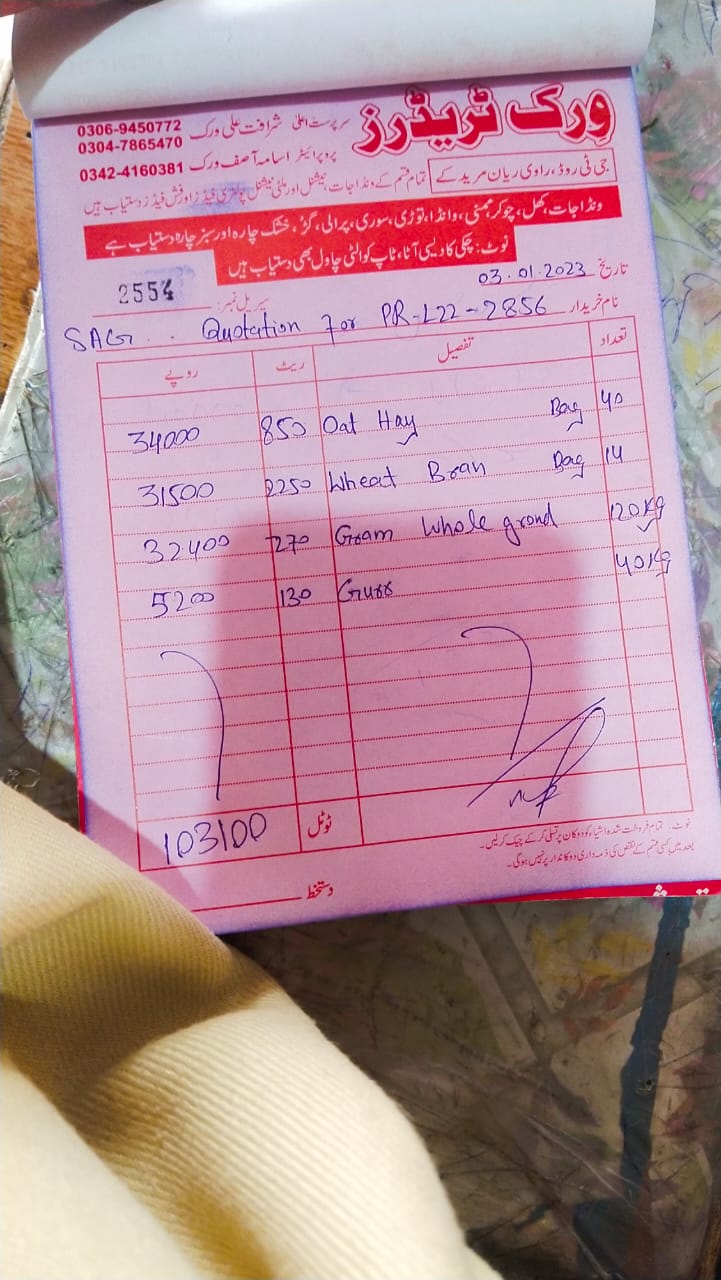 ورک ٹریڈرز
سرپرست اعلیٰ شرافت علی ورک 0306-9450772
0304-7865470
پروپرائیٹر اسامہ آصف ورک 0342-4160381
جی ٹی روڈ، راوی ریان مریدکے
تمام قسم کے ونڈا جات، نیشنل اور ملٹی نیشنل پولٹری فیڈز اور فش فیڈز دستیاب ہیں
ونڈا جات، کھل، چوکر، مکئی، وانڈا، توڑی، سوری، پرالی، گڑ، خشک چارہ اور سبز چارہ دستیاب ہے
نوٹ: چکی کا دیسی آٹا، ٹاپ کوالٹی چاول بھی دستیاب ہیں
تاریخ 03.01.2023
سیریل نمبر: 2554
نام خریدار SAG.. Quotation for PR-L22-2856
تعداد تفصیل ریٹ روپے
34000 850 Oat Hay Bag 40
31500 2250 Wheat Bran Bag 14
32400 270 Gram Whole grond 120 Kg
5200 130 Gurr 40 Kg
ٹوٹل 103100
نوٹ: تمام فروخت شدہ اشیاء کو دوکان پر تسلی کر کے چیک کر لیں۔
بعد میں کسی قسم کے نقص کی ذمہ داری دوکاندار پر نہیں ہو گی۔
دستخط